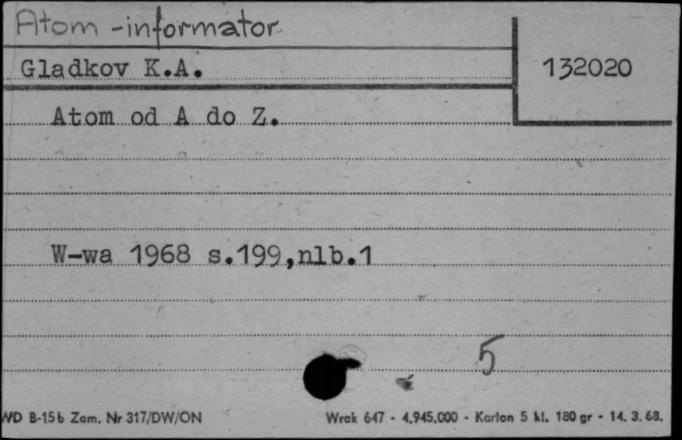 Atom - informator
Gladkov K.A.
132020
Atom od A do Z.
W-wa 1968 s.199,nlb.1
5
WD B-15b Zam. Nr 317/DW/ON
Wrak 647 - 4.945.000 - Karton 5 kl. 180 gr - 14. 3. 68.